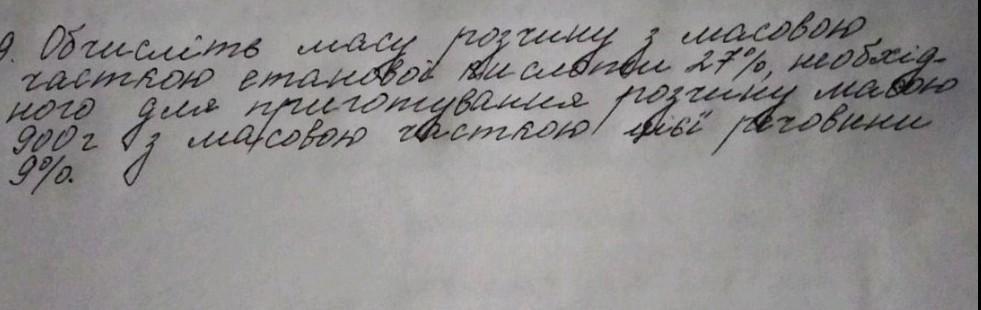 9. Обчисліть масу розчину з масовою
часткою етанової кислоти 27%, необхід-
ного для приготування розчину масою
900г з масовою часткою цієї речовини
9%.